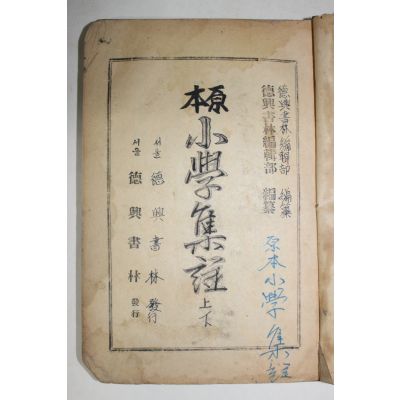 德興書林編輯部 編纂
德興書林編輯部 編纂
原本小學集註
原本
小學集註 上下
서울 德興書林 發行
서울 德興書林 發行